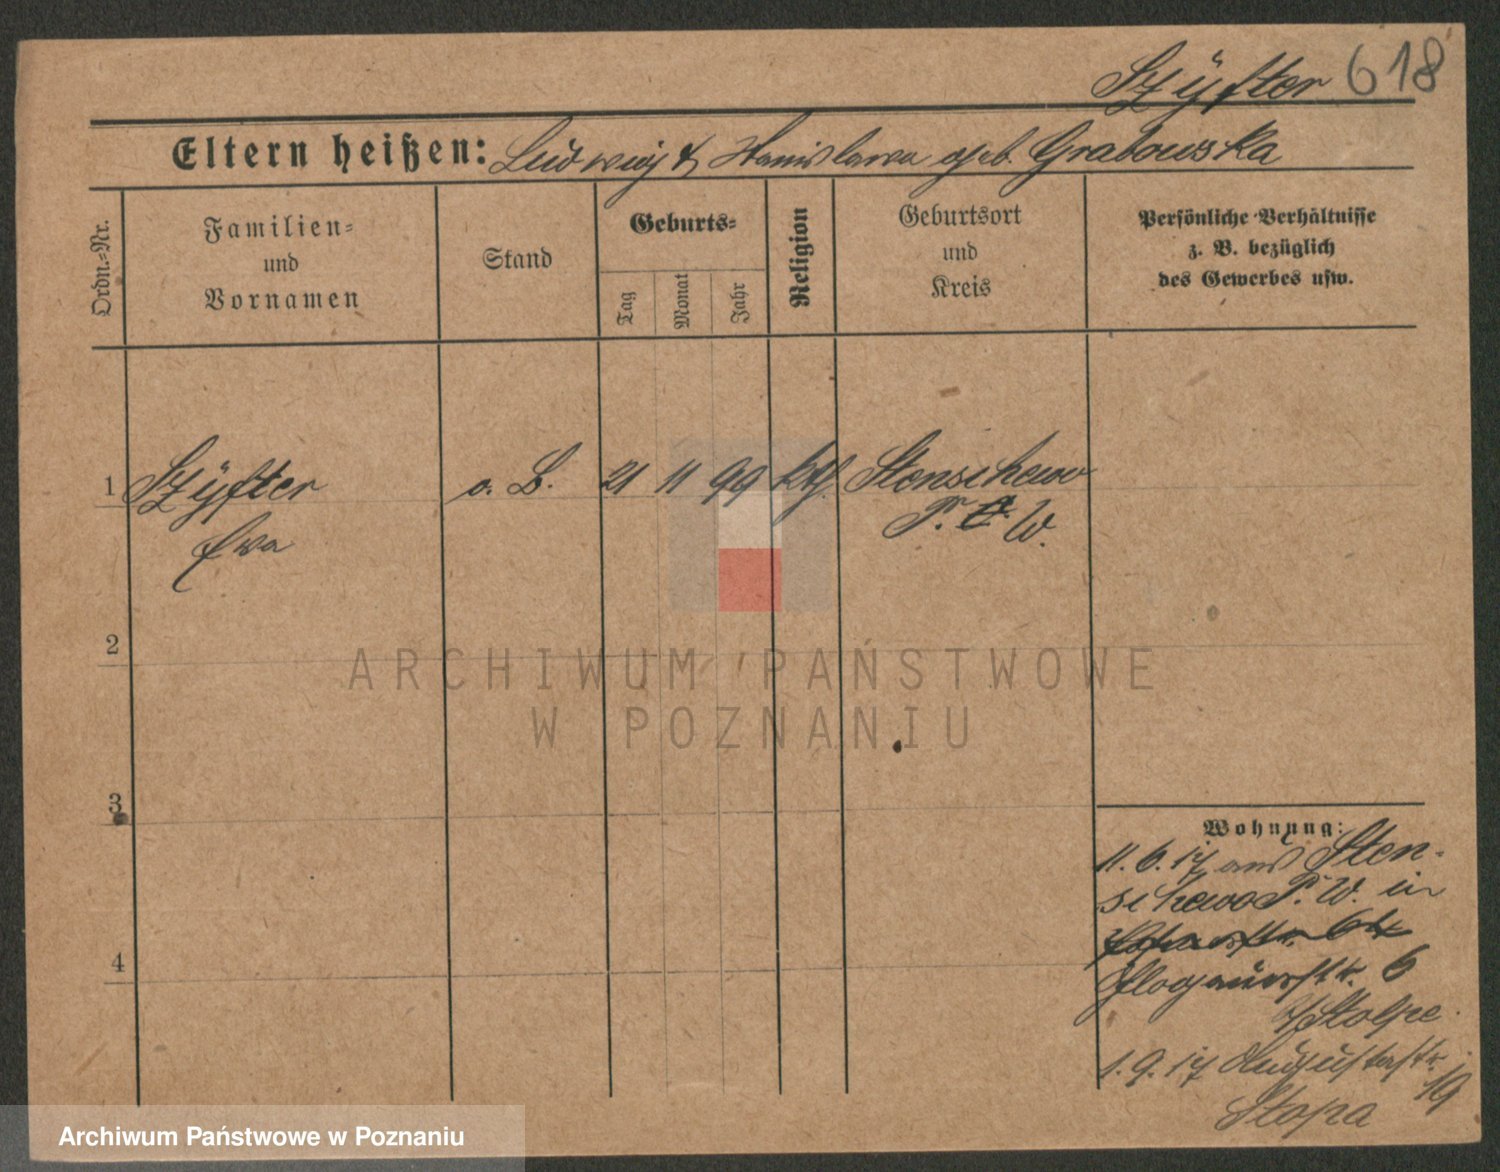 Szÿfter 618
Eltern heißen: Ludwig & Stanislawa geb. Grabowska
Ordn.-Nr.
Familien-
und
Vornamen
Stand
Geburts-
Tag
Monat
Jahr
Religion
Geburtsort
und
Kreis
Persönliche Verhältnisse
z. B. bezüglich
des Gewerbes usw.
1 Szÿfter o. B. 21 11 99 kth. Stenschewo
Ewa P. W.
2
3
4
Wohnung:
11. 6. 17 aus Sten-
schewo P. W. in
Glogauerstr. 6
b/ Stolpe
1. 9. 17 Augustastr.
19
Stopa
ARCHIWUM PAŃSTWOWE
W POZNANIU
Archiwum Państwowe w Poznaniu